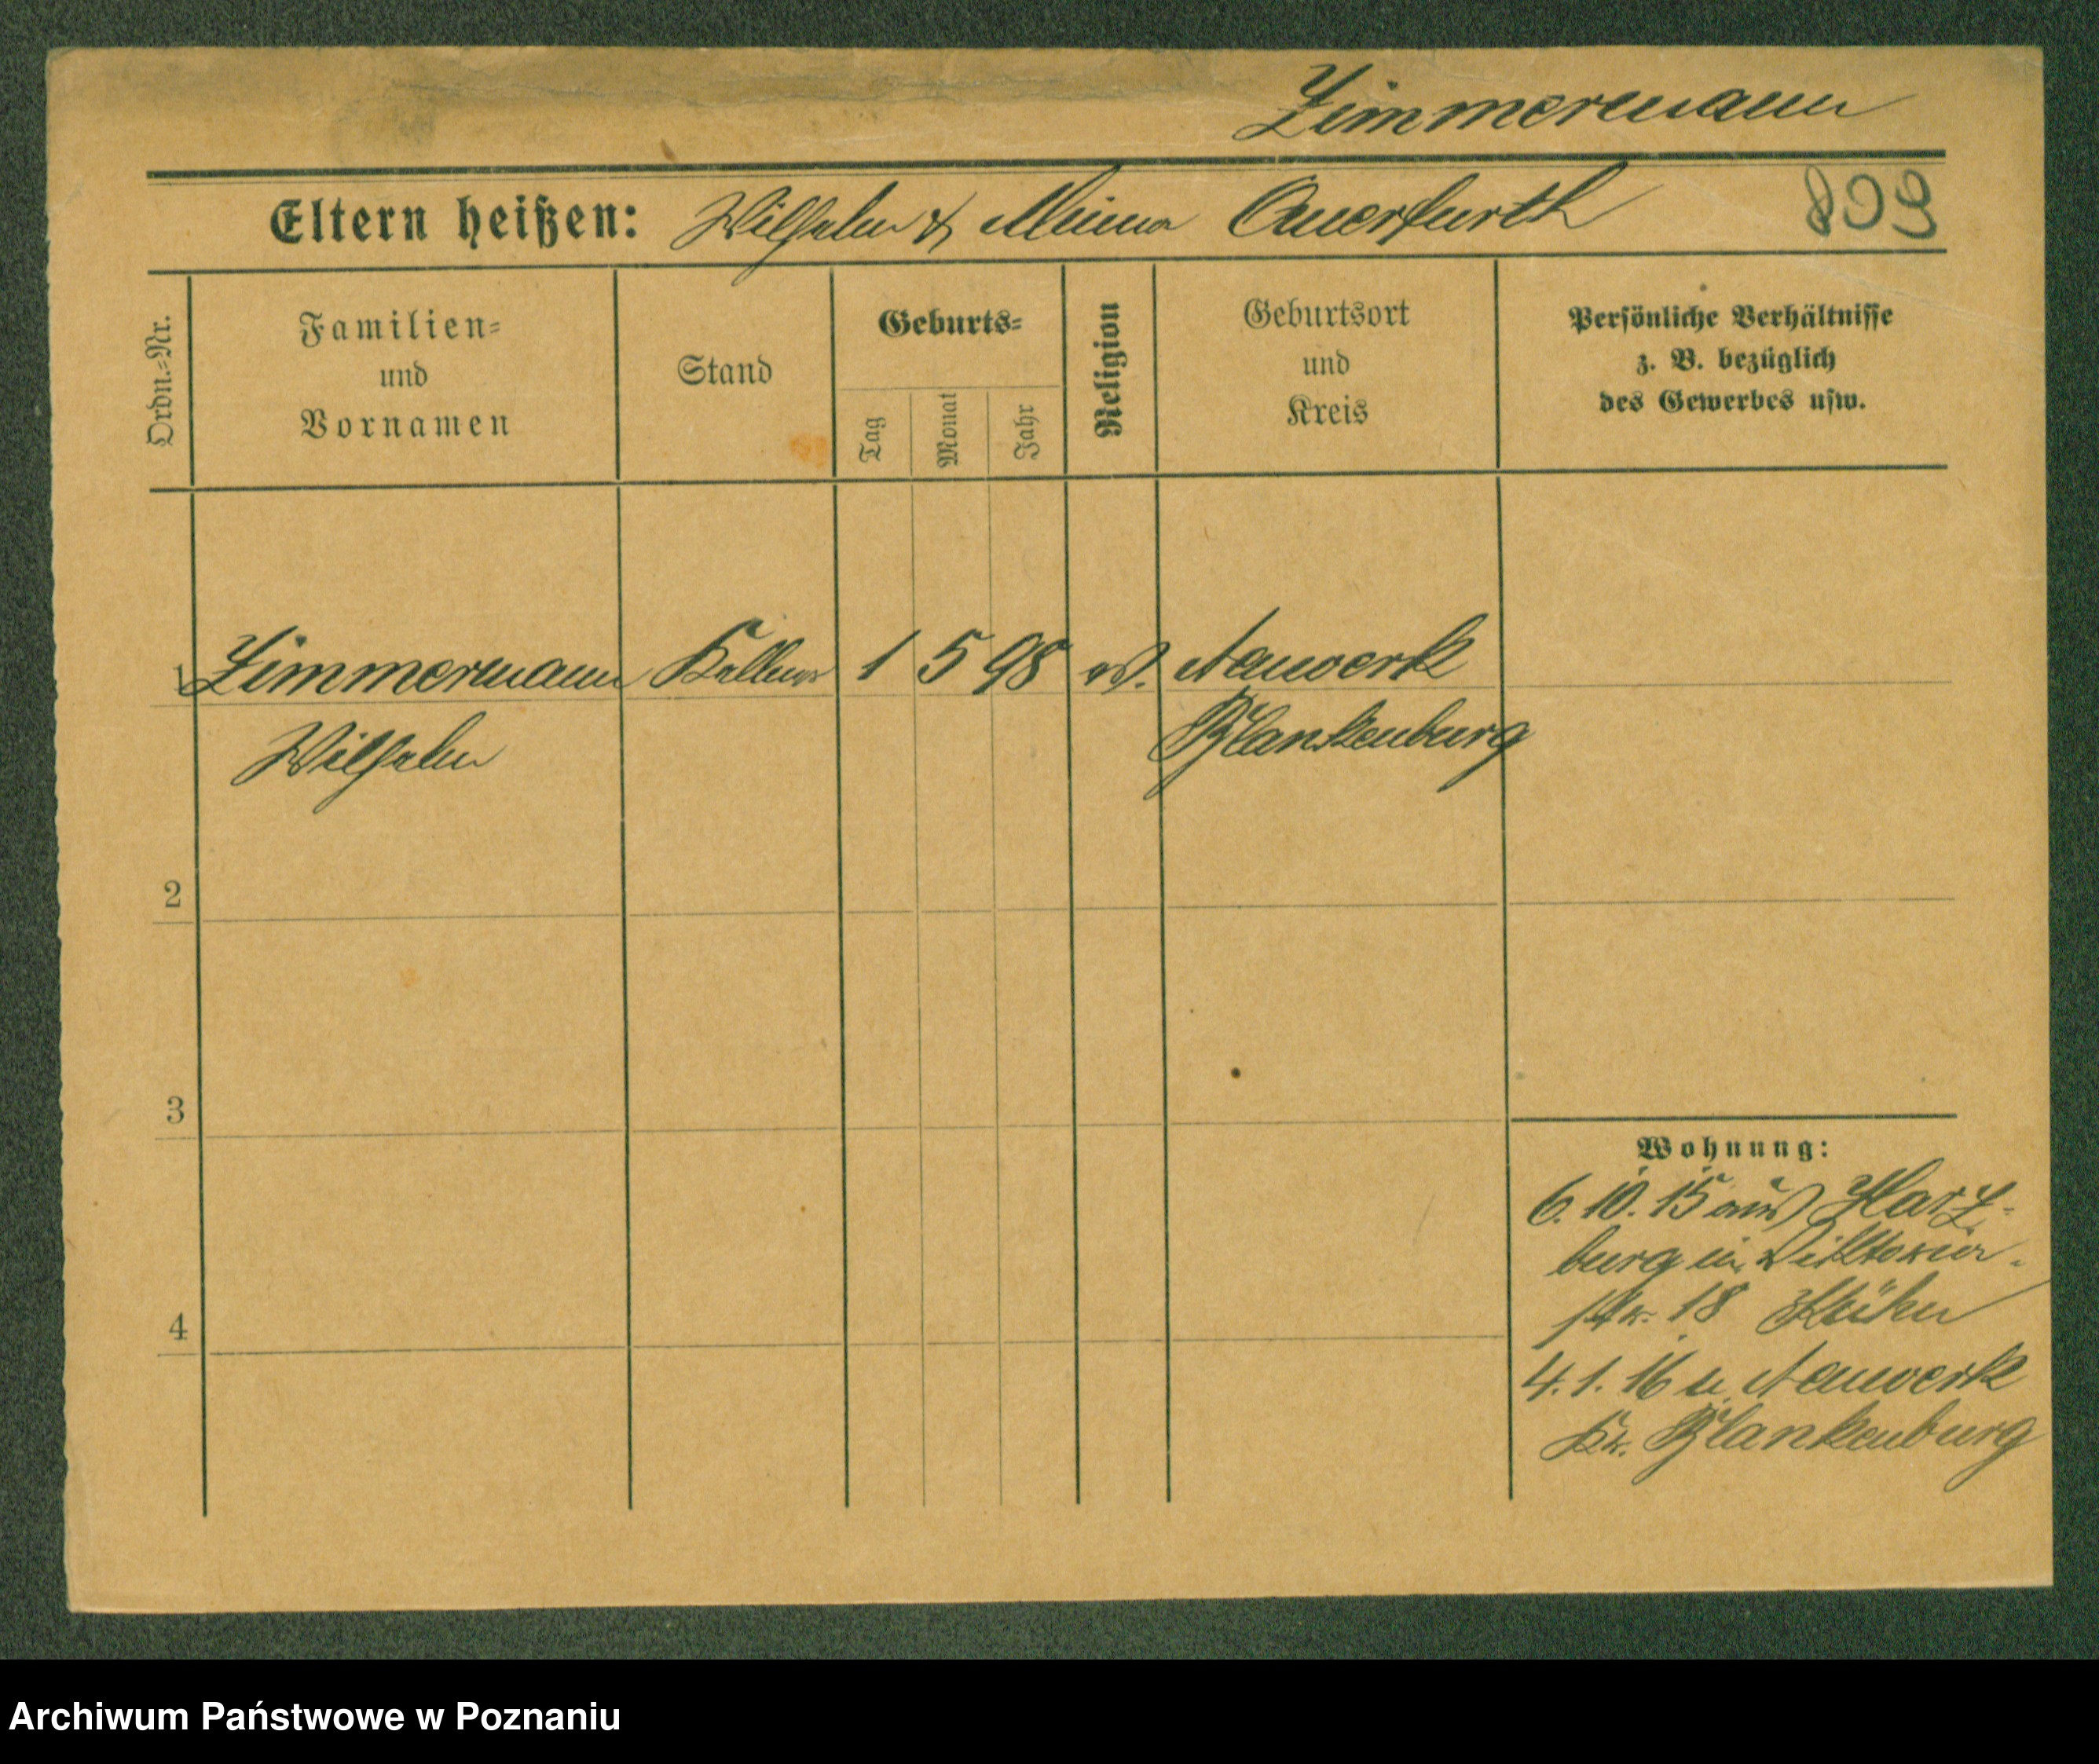 Zimmermann
Eltern heißen: Wilhelm & Minna Querfurth
809
Ordn.=Nr.
Familien=
und
Vornamen
Stand
Geburts=
Tag
Monat
Jahr
Religion
Geburtsort
und
Kreis
Persönliche Verhältnisse
z. B. bezüglich
des Gewerbes usw.
1 Zimmermann Kellner 1 5 98 ev. Neuwerk
Wilhelm Blankenburg
2
3
4
Wohnung:
6.10.15 aus Harz-
burg in Viktoria-
str. 18
4.1.16 n. Neuwerk
Kr. Blankenburg
Archiwum Państwowe w Poznaniu